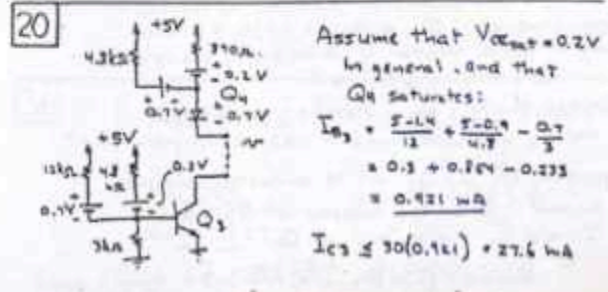 20
+5V
4.3kΩ
390Ω
0.2V
Q4
0.7V
0.7V
+5V
12kΩ
4.8
kΩ
0.2V
0.7V
Q3
3kΩ
Assume that VCEsat = 0.2V
in general, and that
Q4 saturates:
IB3 = (5-1.4)/12 + (5-0.9)/4.8 - 0.7/3
= 0.3 + 0.854 - 0.233
= 0.921 mA
IC3 ≤ 30(0.921) = 27.6 mA